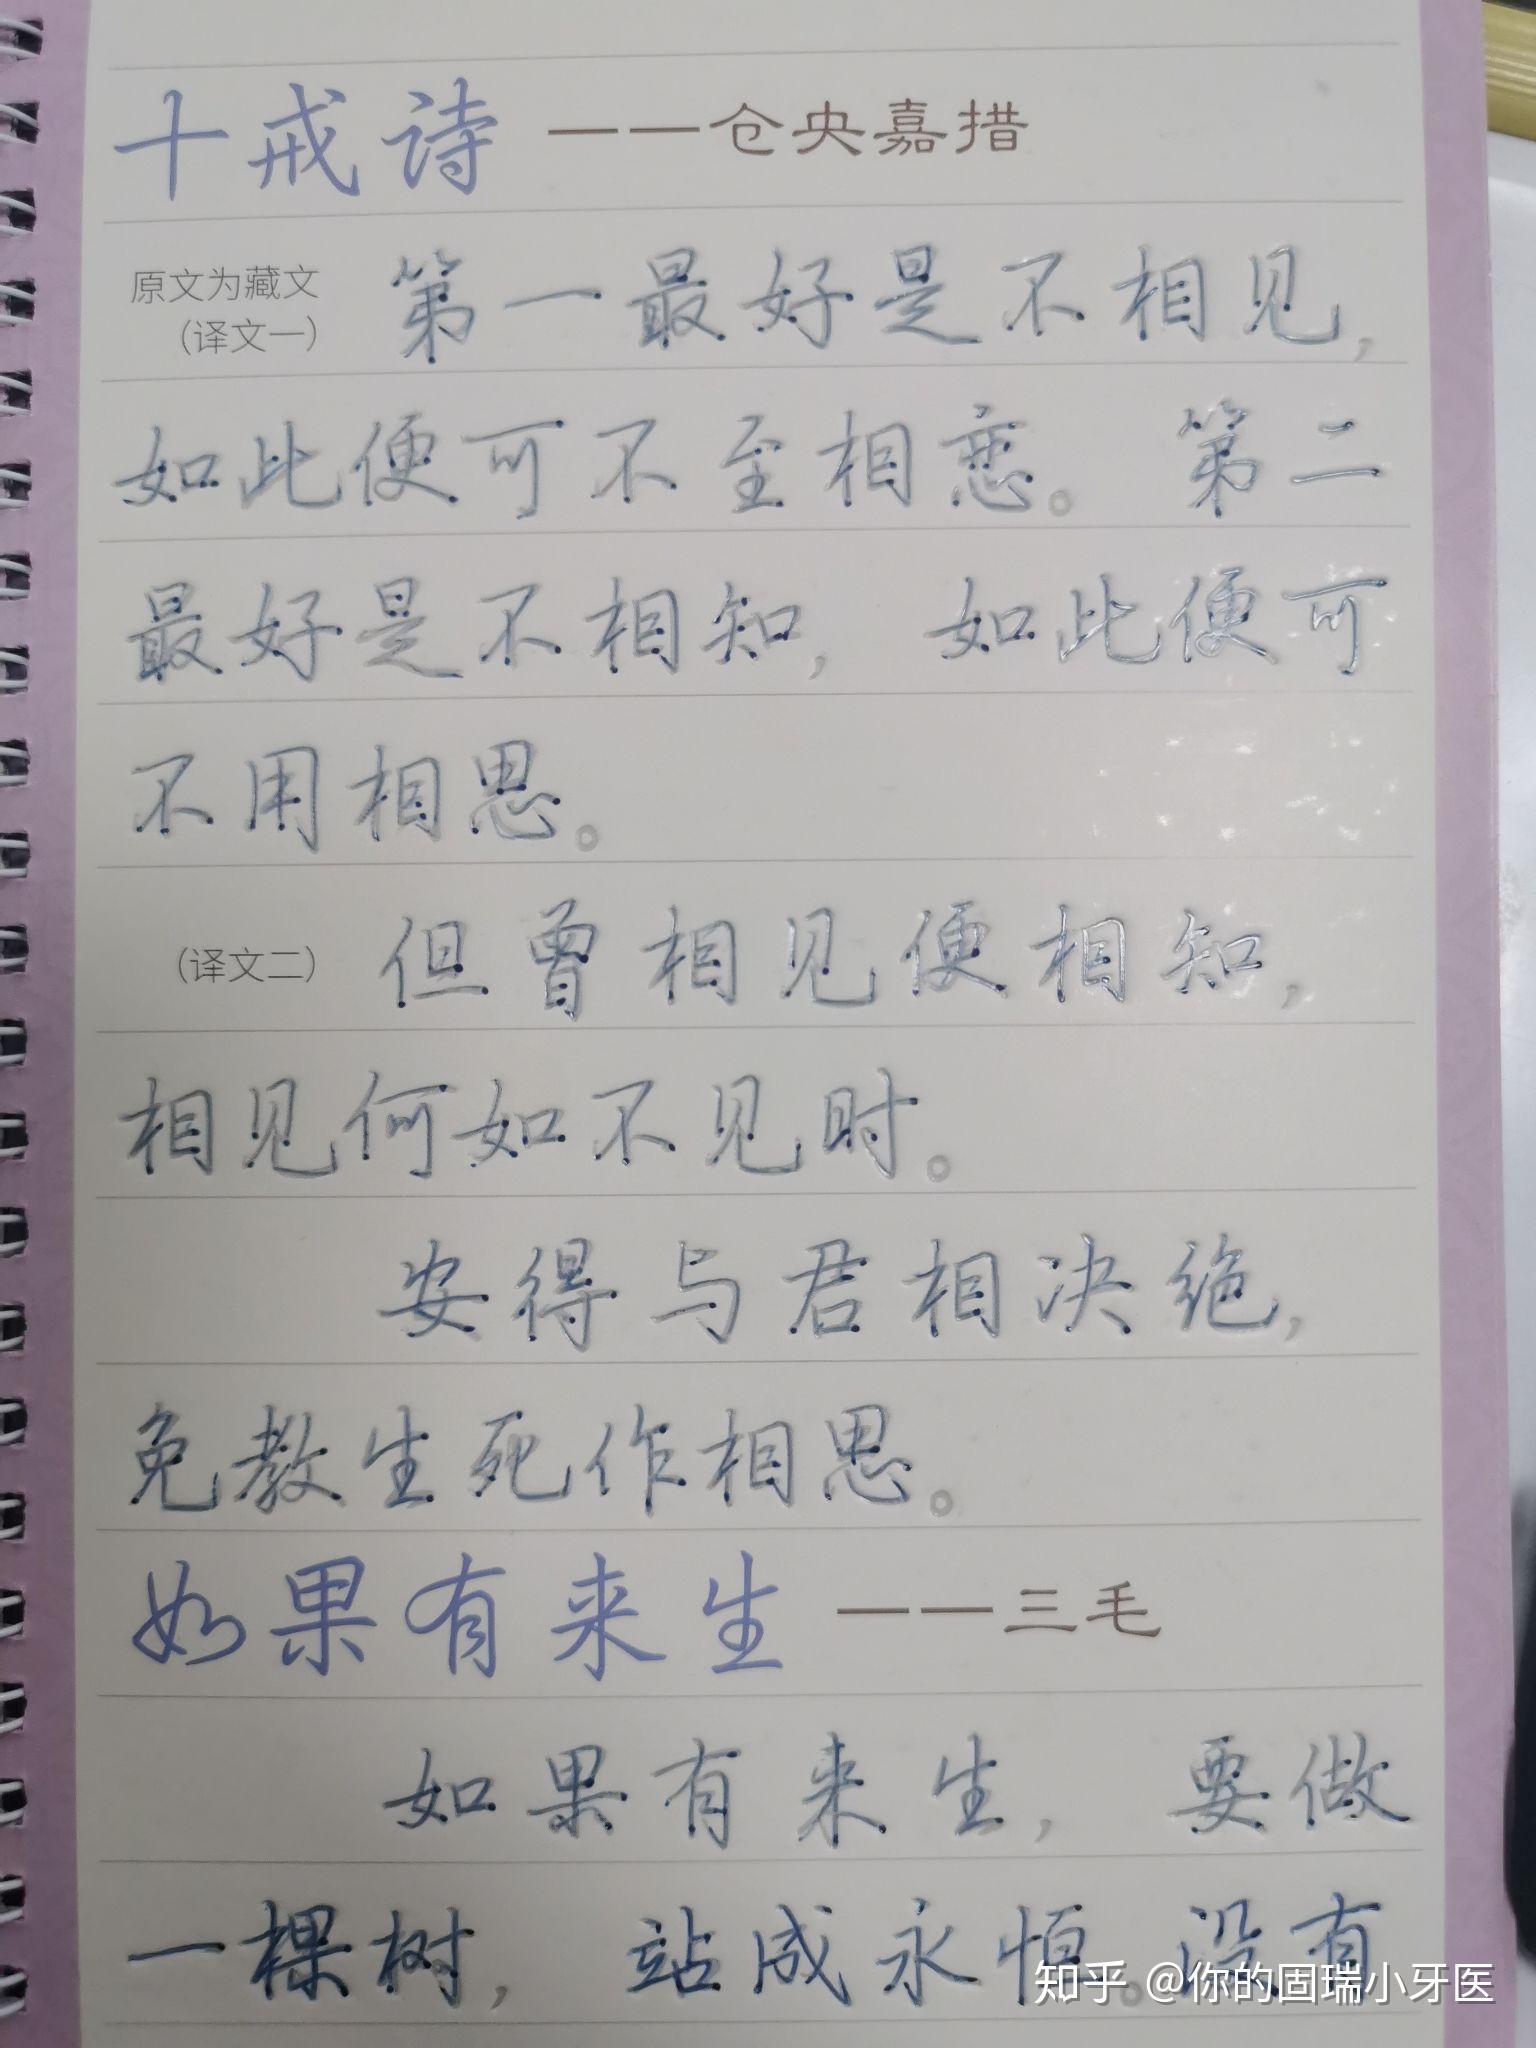 十戒诗 ——仓央嘉措
原文为藏文
(译文一)
第一最好是不相见，
如此便可不至相恋。 第二
最好是不相知， 如此便可
不用相思。
(译文二) 但曾相见便相知，
相见何如不见时。
安得与君相决绝，
免教生死作相思。
如果有来生 ——三毛
如果有来生， 要做
一棵树， 站成永恒。没有
知乎 @你的固瑞小牙医